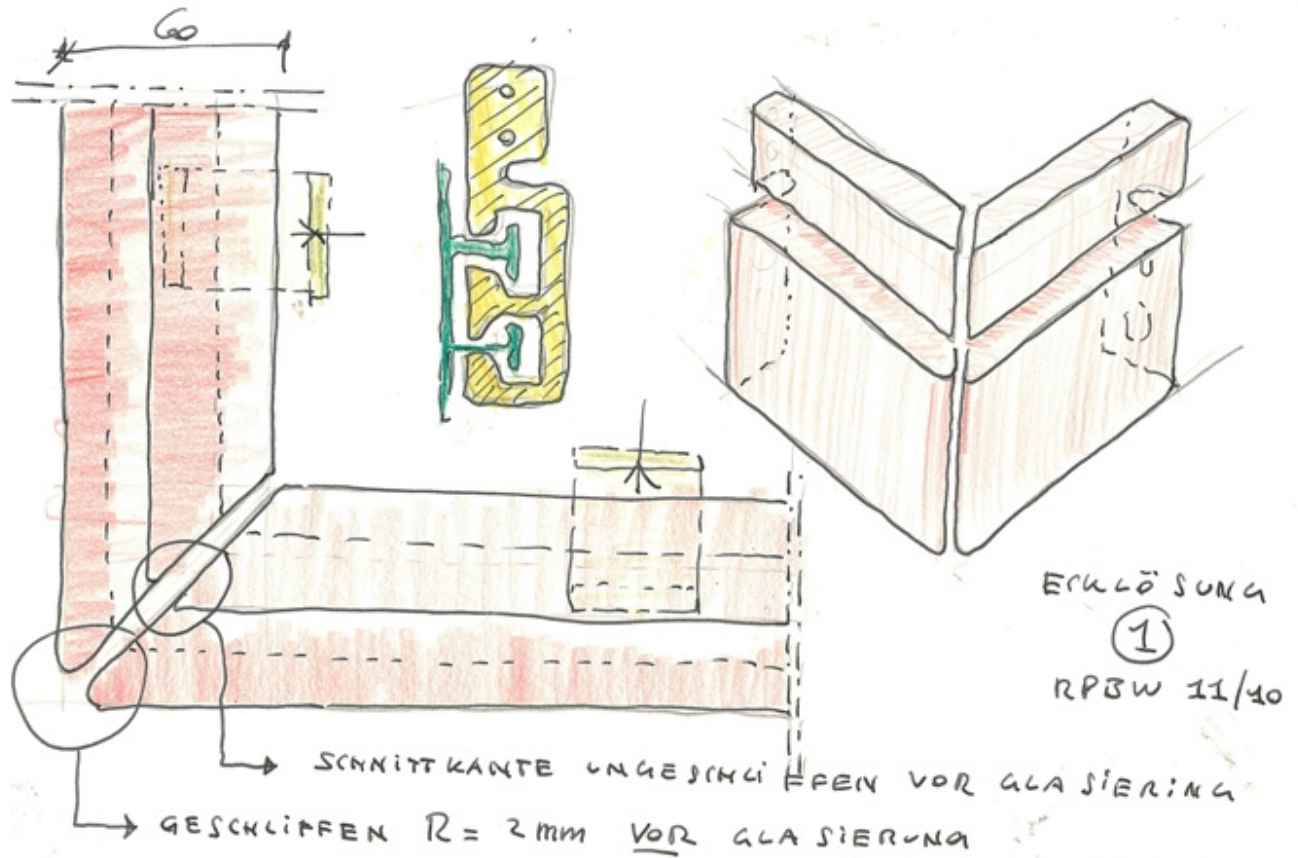 60
ECKLÖSUNG
1
RPBW 11/10
SCHNITTKANTE UNGESCHLIFFEN VOR GLASIERING
GESCHLIFFEN R = 2 mm VOR GLASIERUNG